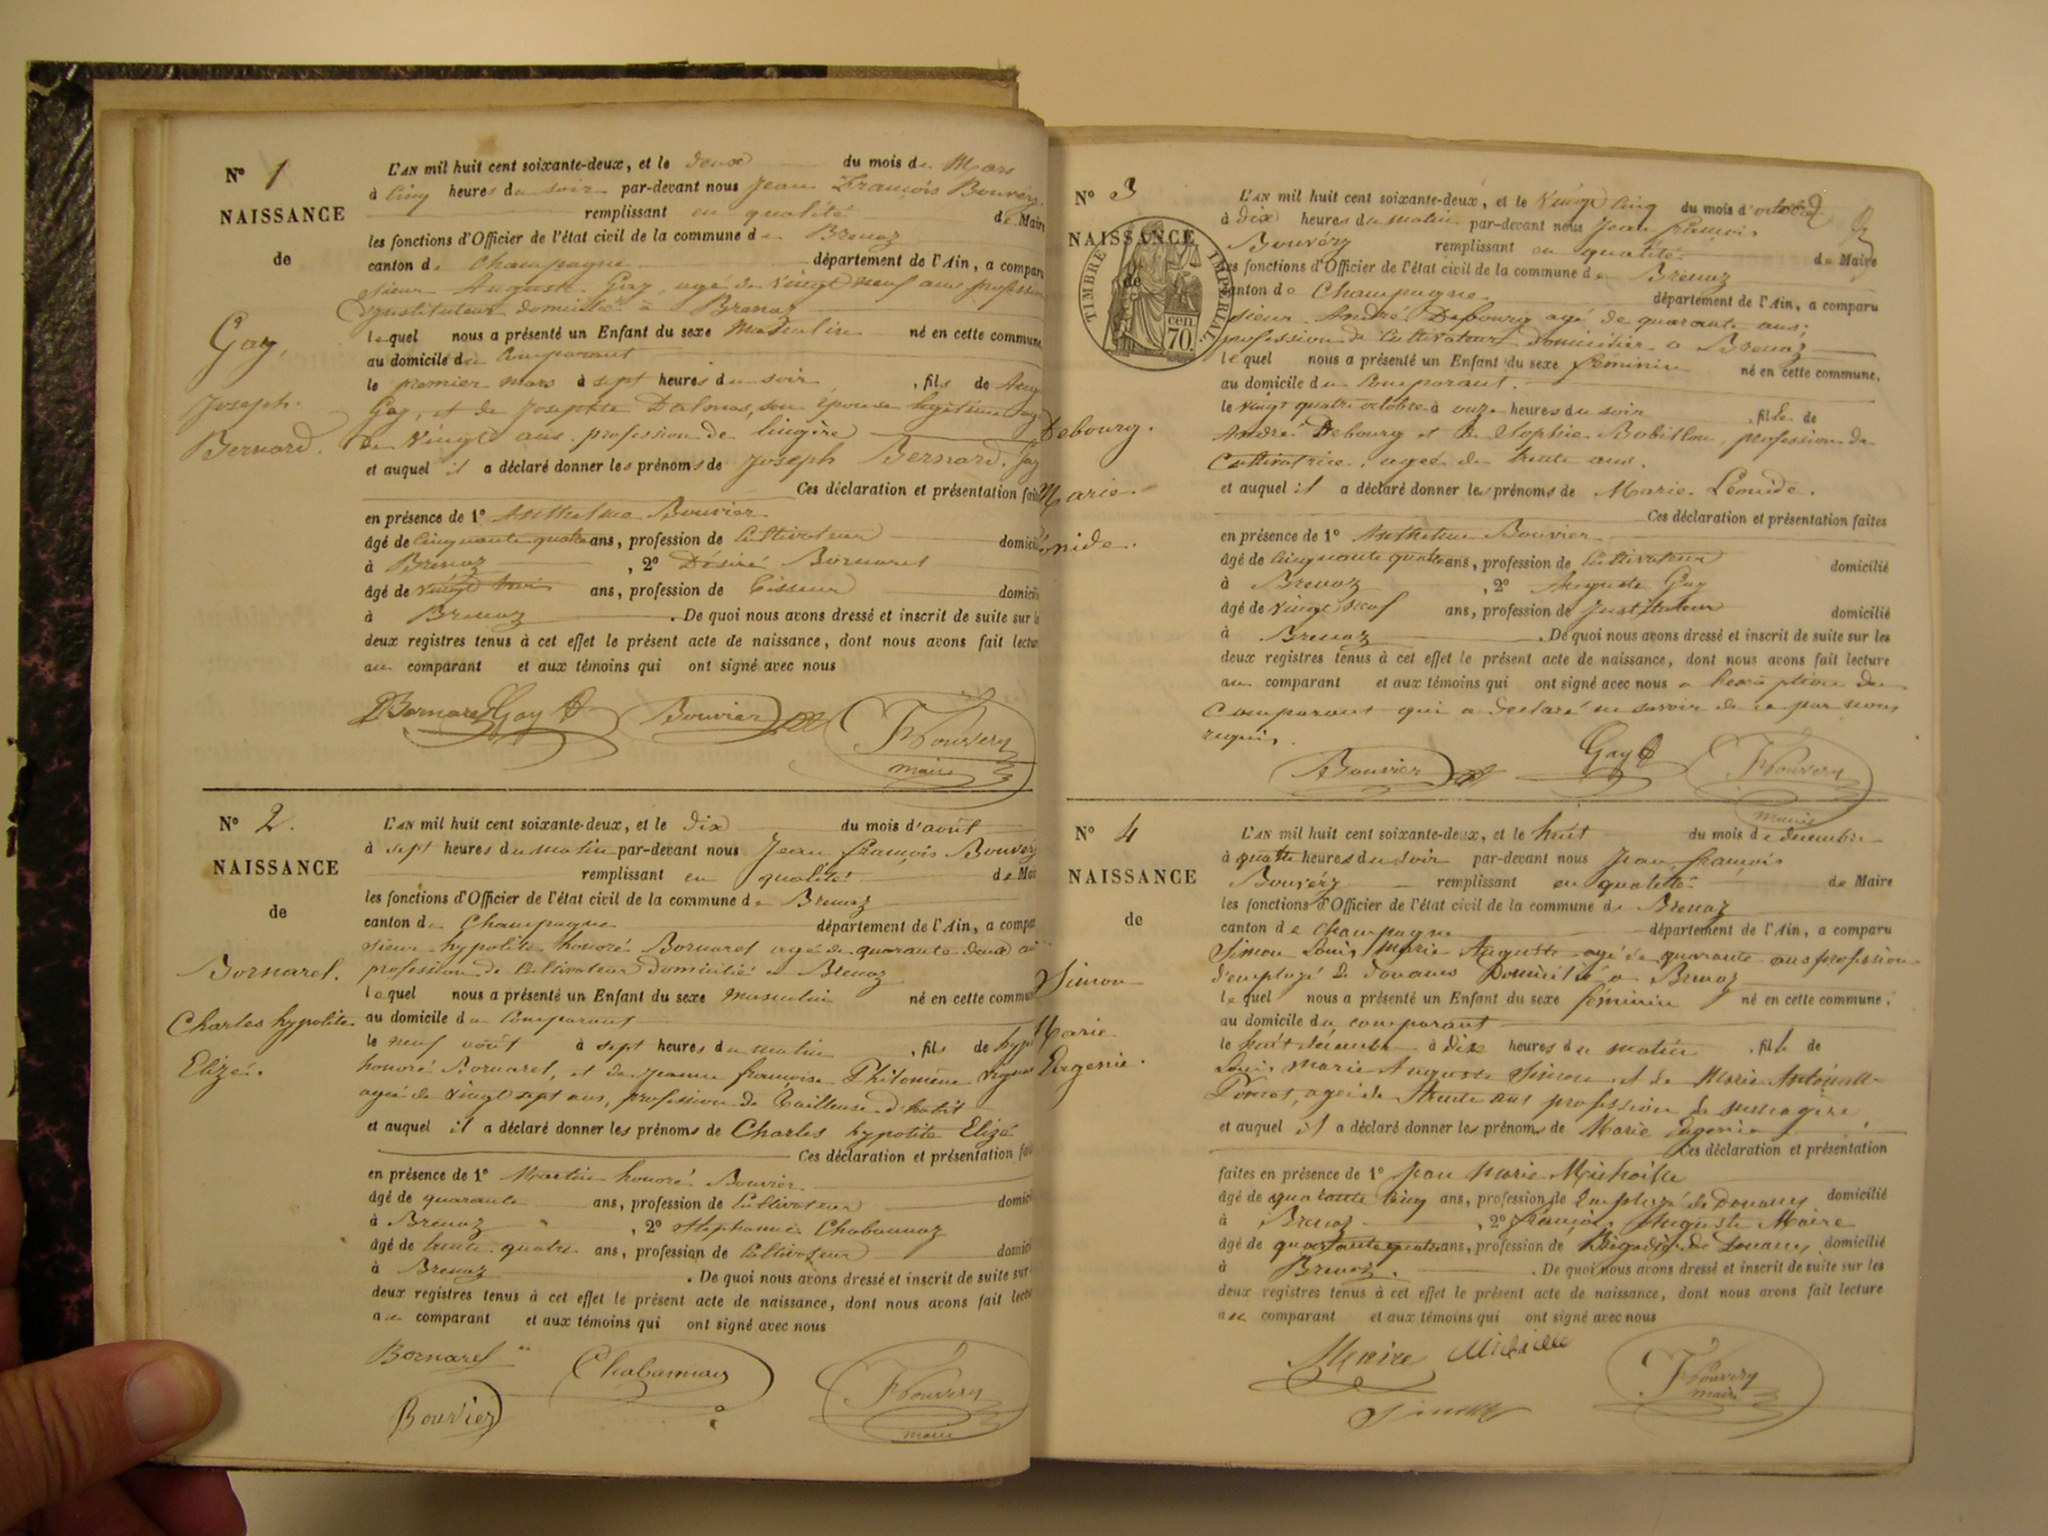 N° 1
NAISSANCE
de
Gay,
Joseph
Bernard.
L'AN mil huit cent soixante-deux, et le deux du mois de Mars
à cinq heures du soir par-devant nous Jean François Bouvéry
remplissant en qualité de Maire
les fonctions d'Officier de l'état civil de la commune de Brenaz
canton de Champagne département de l'Ain, a compar
sieur Auguste Gay, agé de vingt neuf ans profession
d'instituteur domicilié à Brenaz
lequel nous a présenté un Enfant du sexe Masculin né en cette commune
au domicile du Comparant
le premier mars à sept heures du soir, fils de Aug
Gay, et de Josephte son épouse légitime agé
de vingt ans profession de lingère
et auquel il a déclaré donner les prénoms de Joseph Bernard. Gay
Ces déclaration et présentation fait
en présence de 1° Anthelme Bouvier
âgé de cinquante quatre ans, profession de Cultivateur domicil
à Brenaz, 2° Désiré Bornarel
âgé de vingt trois ans, profession de Tisseur domici
à Brenaz. De quoi nous avons dressé et inscrit de suite sur le
deux registres tenus à cet effet le présent acte de naissance, dont nous avons fait lectu
au comparant et aux témoins qui ont signé avec nous
Bornarel Gay A Bouvier JF Bouvery
maire
N° 2.
NAISSANCE
de
Bornarel.
Charles hypolite
Elizé.
L'AN mil huit cent soixante-deux, et le dix du mois d'août
à sept heures du matin par-devant nous Jean françois Bouvery
remplissant en qualité de Mai
les fonctions d'Officier de l'état civil de la commune de Brenaz
canton de Champagne département de l'Ain, a compa
sieur hypolite honoré Bornarel agé de quarante deux an
profession de Cultivateur domicilié à Brenaz
lequel nous a présenté un Enfant du sexe masculin né en cette commun
au domicile du Comparant
le neuf août à sept heures du matin, fils de hypo
honoré Bornarel, et de Jeanne françoise Philomène
agée de vingt sept ans, profession de Tailleuse d'habit
et auquel il a déclaré donner les prénoms de Charles hypolite Elizé
Ces déclaration et présentation fai
en présence de 1° Martin honoré Bouvier
âgé de quarante ans, profession de Cultivateur domici
à Brenaz, 2° Stephanie Chabannaz
âgé de trente quatre ans, profession de Cultivateur domici
à Brenaz. De quoi nous avons dressé et inscrit de suite sur
deux registres tenus à cet effet le présent acte de naissance, dont nous avons fait lectu
au comparant et aux témoins qui ont signé avec nous
Bornarel Chabannaz JF Bouvery
Bouvier maire
N° 3
NAISSANCE
de
TIMBRE IMPÉRIAL
70 cen
Debourg.
Marie
onide.
L'AN mil huit cent soixante-deux, et le vingt cinq du mois d'octobre
à dix heures du matin par-devant nous Jean françois
Bouvéry remplissant en qualité de Maire
les fonctions d'Officier de l'état civil de la commune de Brenaz
canton de Champagne département de l'Ain, a comparu
sieur André Debourg agé de quarante ans;
profession de Cultivateur domicilié à Brenaz
lequel nous a présenté un Enfant du sexe féminin né en cette commune,
au domicile du Comparant.
le vingt quatre octobre à onze heures du soir, fille de
André Debourg et de Sophie Bobillon, profession de
Cultivatrice, agée de trente ans.
et auquel il a déclaré donner les prénoms de Marie Léonide.
Ces déclaration et présentation faites
en présence de 1° Anthelme Bouvier
âgé de cinquante quatre ans, profession de Cultivateur domicilié
à Brenaz, 2° Auguste Gay
âgé de vingt neuf ans, profession de Instituteur domicilié
à Brenaz. De quoi nous avons dressé et inscrit de suite sur les
deux registres tenus à cet effet le présent acte de naissance, dont nous avons fait lecture
au comparant et aux témoins qui ont signé avec nous a l'exception du
Comparant qui a declaré ne savoir de ce par nous
requis.
Bouvier Gay A JF Bouvery
maire
N° 4
NAISSANCE
de
Simon
Marie
Eugenie.
L'AN mil huit cent soixante-deux, et le huit du mois de decembre
à quatre heures du soir par-devant nous Jean françois
Bouvéry remplissant en qualité de Maire
les fonctions d'Officier de l'état civil de la commune de Brenaz
canton de champagne département de l'Ain, a comparu
Simon Louis Marie Auguste agé de quarante ans profession
d'employé de douanes Domicilié a Brenaz
lequel nous a présenté un Enfant du sexe féminin né en cette commune.
au domicile du comparant
le huit décembre à dix heures du matin, fille de
Louis marie Auguste Simon et de Marie Antoinette
agée de trente ans profession de menagère
et auquel il a déclaré donner les prénoms de Marie Eugenie
Ces déclaration et présentation
faites en présence de 1° Jean Marie
âgé de quarante cinq ans, profession de Employé de Douanes domicilié
à Brenaz, 2° françois Auguste Maire
âgé de quarante quatre ans, profession de Brigadier de Douanes domicilié
à Brenaz. De quoi nous avons dressé et inscrit de suite sur les
deux registres tenus à cet effet le présent acte de naissance, dont nous avons fait lecture
au comparant et aux témoins qui ont signé avec nous
Maire JF Bouvery
maire
Simon